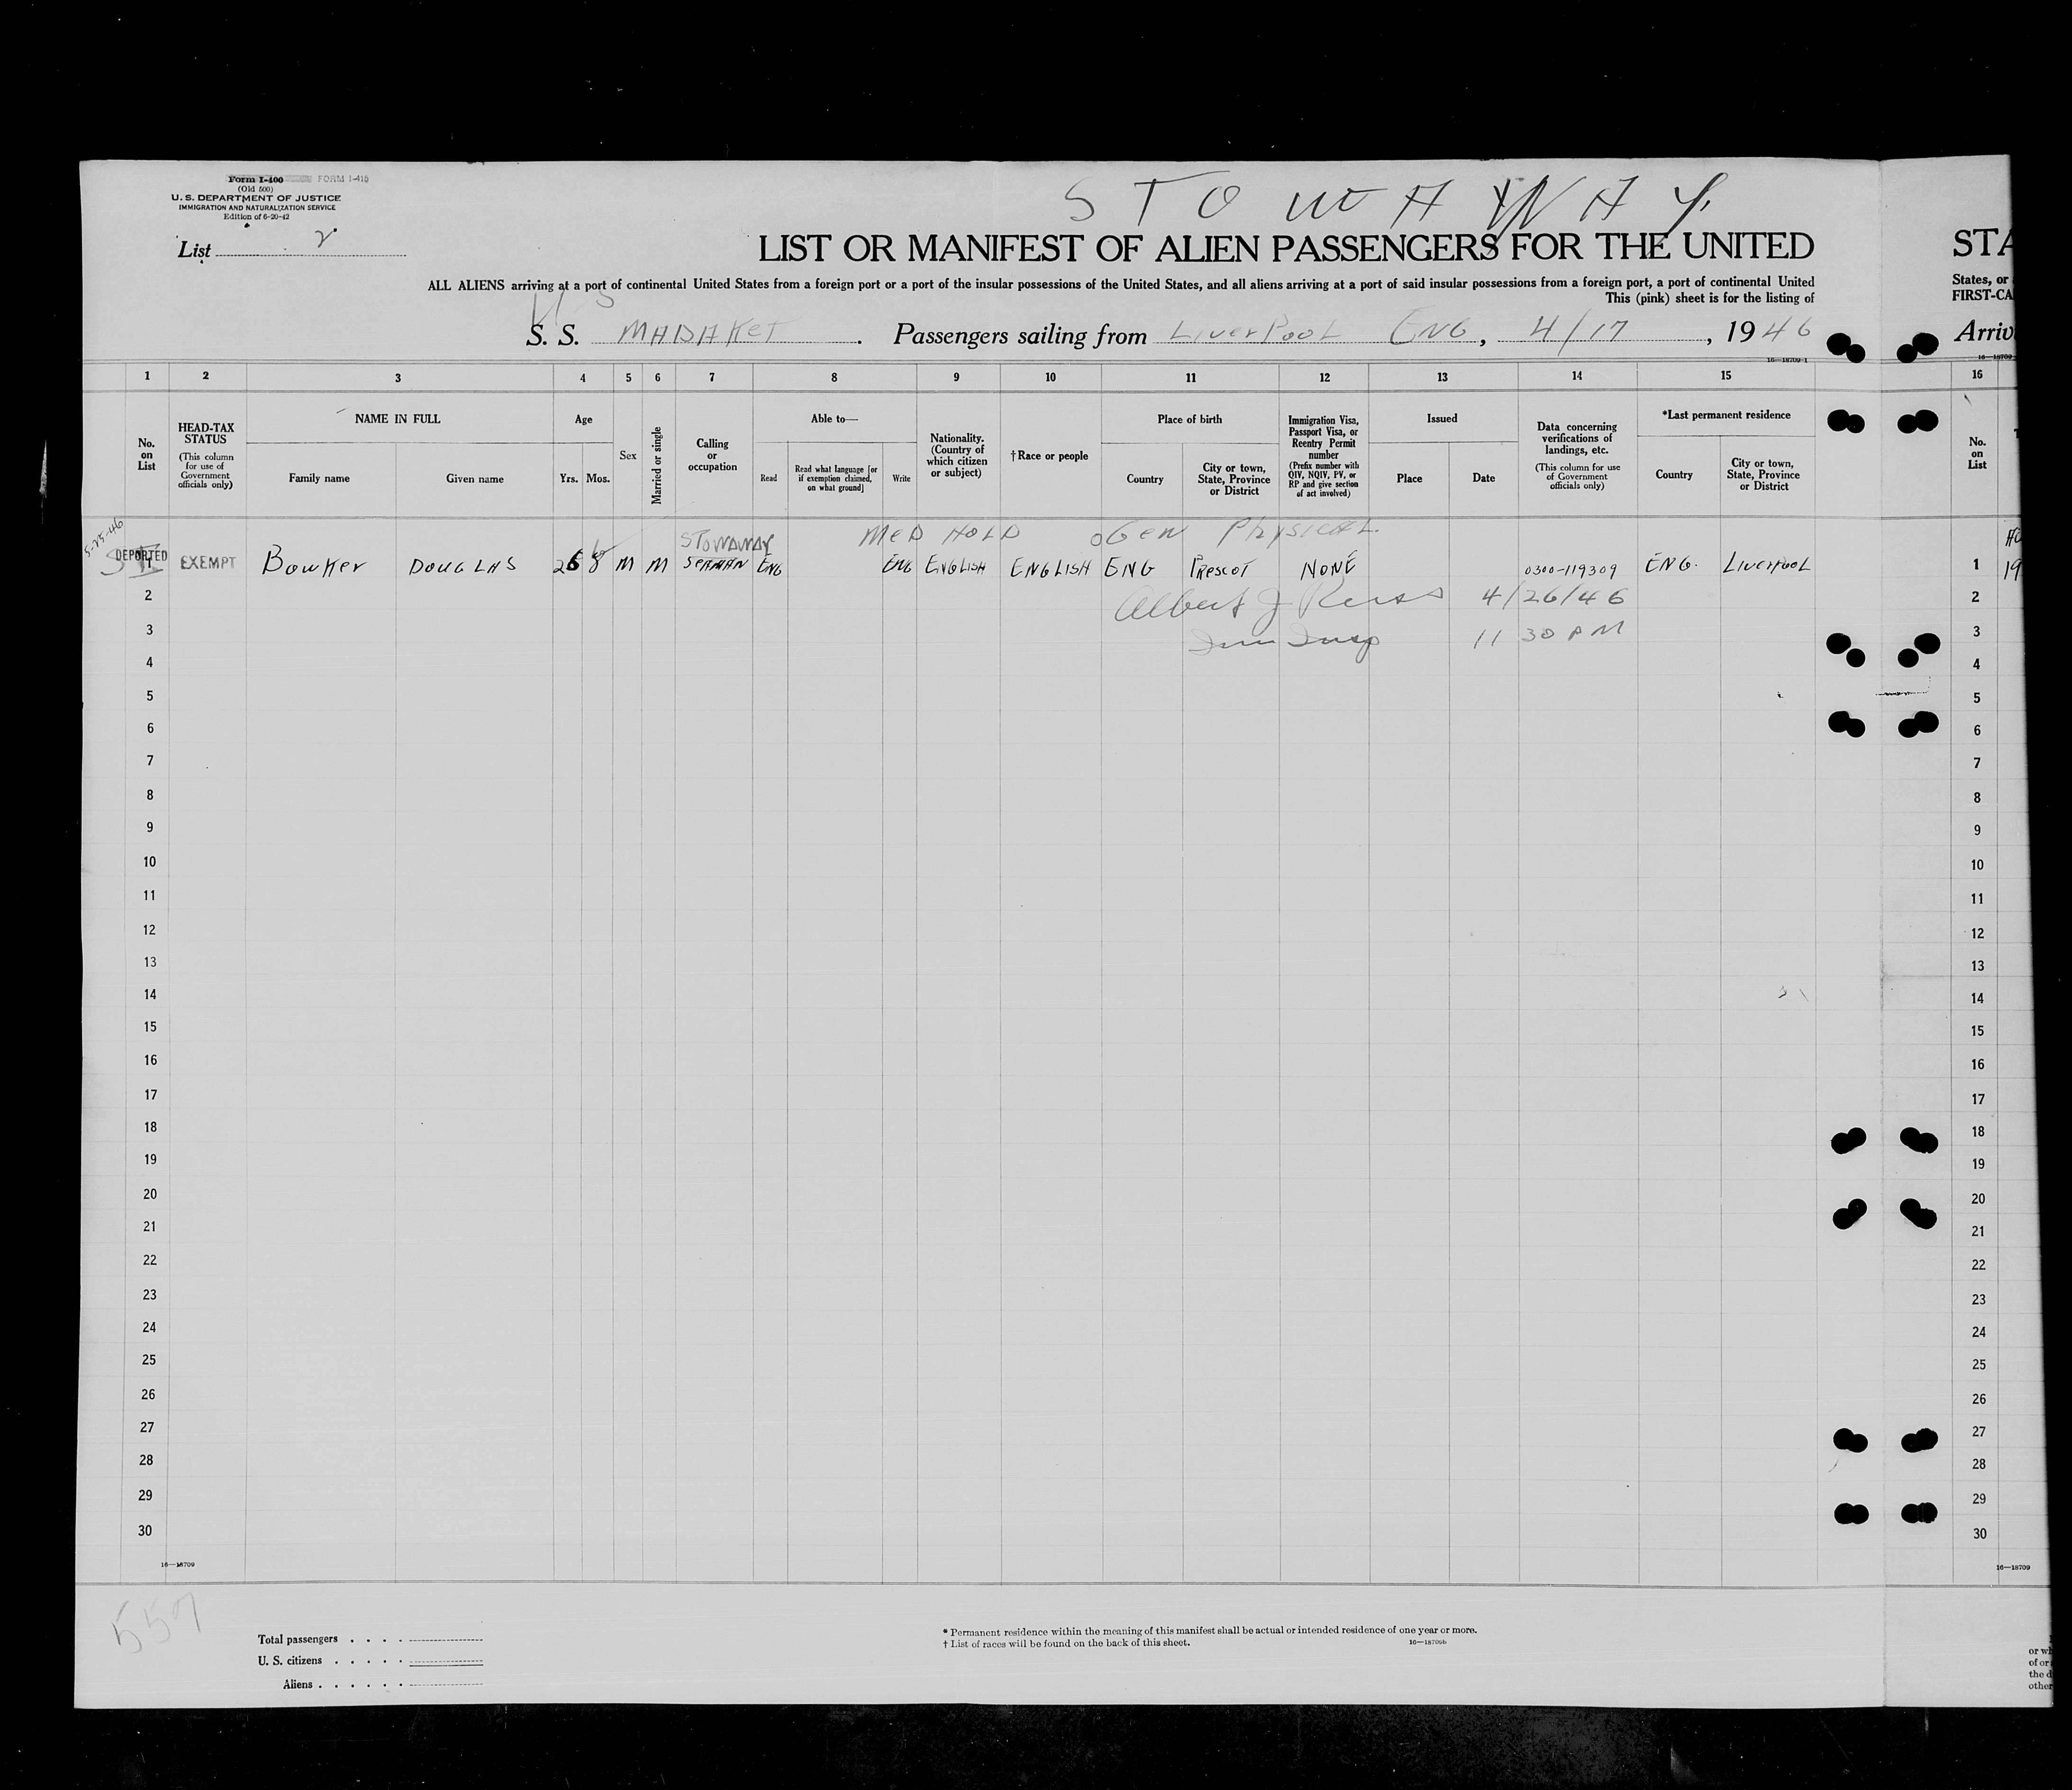 Form I-400 FORM I-415
(Old 500)
U. S. DEPARTMENT OF JUSTICE
IMMIGRATION AND NATURALIZATION SERVICE
Edition of 6-20-42
STOWAWAY
List 2
LIST OR MANIFEST OF ALIEN PASSENGERS FOR THE UNITED
STA
ALL ALIENS arriving at a port of continental United States from a foreign port or a port of the insular possessions of the United States, and all aliens arriving at a port of said insular possessions from a foreign port, a port of continental United
States, or
This (pink) sheet is for the listing of
FIRST-CA
U S
S. S. MADAKET. Passengers sailing from LIVERPOOL ENG, 4/17, 1946
Arriv
16—18709-1
16—18709
1 2 3 4 5 6 7 8 9 10 11 12 13 14 15 16
No. on List
HEAD-TAX STATUS
(This column for use of Government officials only)
NAME IN FULL
Family name Given name
Age
Yrs. Mos.
Sex
Married or single
Calling or occupation
Able to—
Read
Read what language [or if exemption claimed, on what ground]
Write
Nationality. (Country of which citizen or subject)
†Race or people
Place of birth
Country
City or town, State, Province or District
Immigration Visa, Passport Visa, or Reentry Permit number
(Prefix number with QIV, NQIV, PV, or RP and give section of act involved)
Issued
Place Date
Data concerning verifications of landings, etc.
(This column for use of Government officials only)
*Last permanent residence
Country
City or town, State, Province or District
No. on List
5-25-46
STOWAWAY MED HOLD GEN PHYSICAL
DEPORTED
1 EXEMPT BOWKER DOUGLAS 26 8 M M SEAMAN ENG ENG ENGLISH ENGLISH ENG PRESCOT NONE 0300-119309 ENG. LIVERPOOL 1 19
2 Albert J 4/26/46 2
3 Imm Insp 11 30 PM 3
4 4
5 5
6 6
7 7
8 8
9 9
10 10
11 11
12 12
13 13
14 14
15 15
16 16
17 17
18 18
19 19
20 20
21 21
22 22
23 23
24 24
25 25
26 26
27 27
28 28
29 29
30 30
16—18709 16—18709
557
Total passengers . . . .
U. S. citizens . . . . .
Aliens . . . . . .
* Permanent residence within the meaning of this manifest shall be actual or intended residence of one year or more.
† List of races will be found on the back of this sheet. 16—18709b
or wh
of or
the d
other